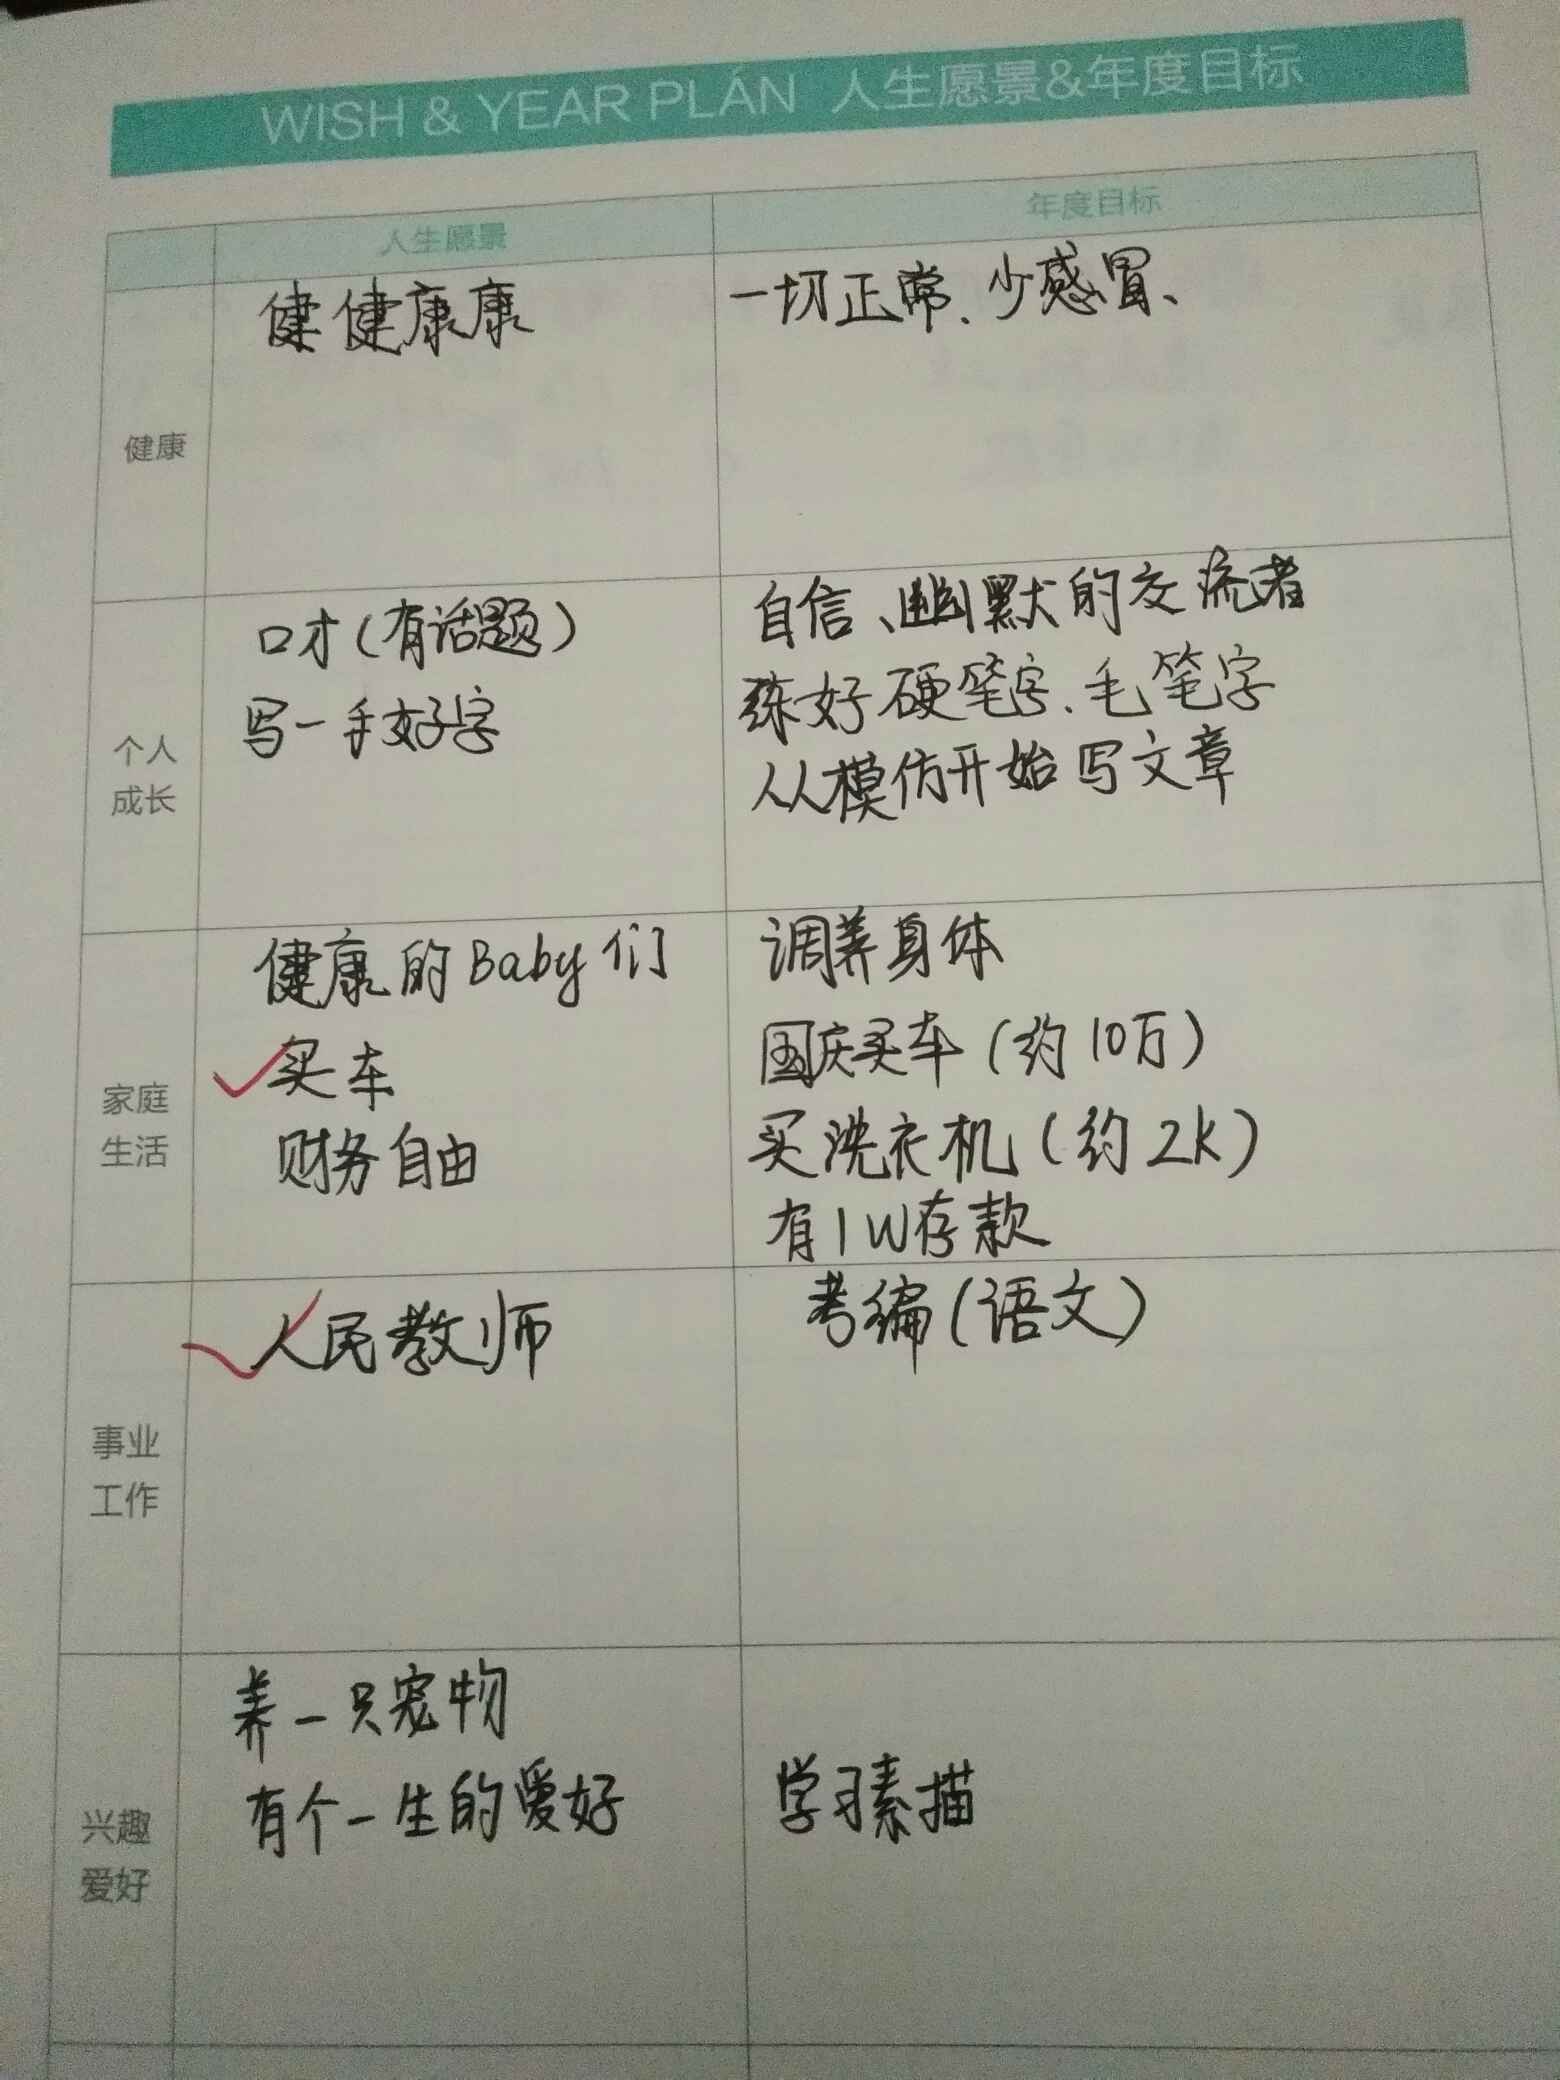 WISH & YEAR PLAN 人生愿景&年度目标
人生愿景 年度目标
健康
健健康康
一切正常、少感冒、
个人
成长
口才(有话题)
写一手好字
自信、幽默的交流者
练好硬笔字、毛笔字
从模仿开始写文章
家庭
生活
健康的Baby们
买车
财务自由
调养身体
国庆买车(约10万)
买洗衣机(约2K)
有1W存款
事业
工作
人民教师
考编(语文)
兴趣
爱好
养一只宠物
有个一生的爱好
学习素描